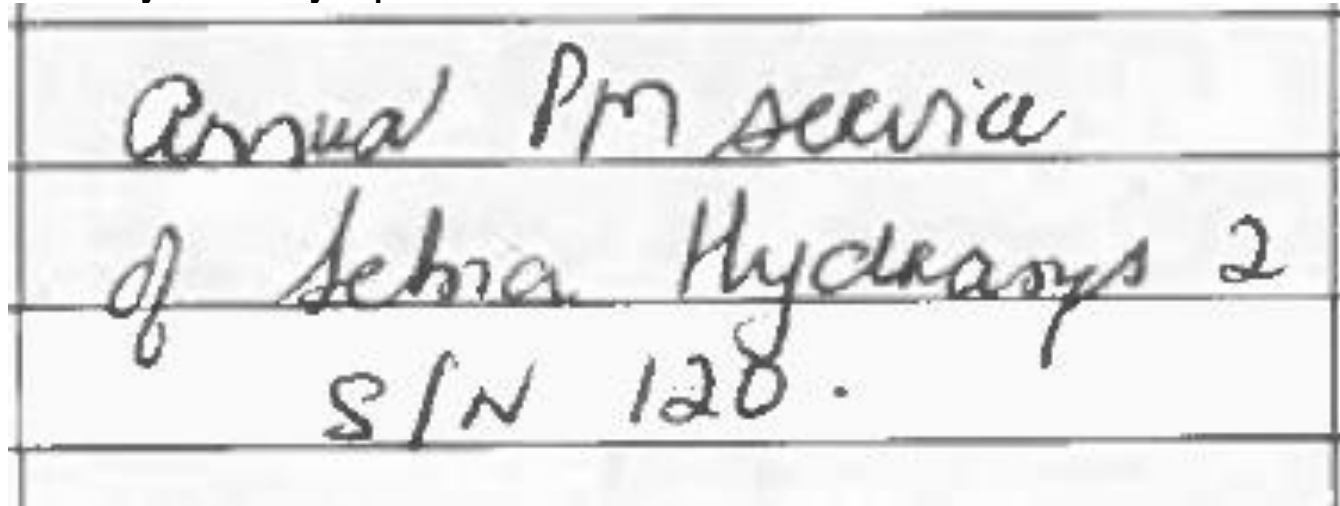 Annual PM service
of Sebia Hydrasys 2
S/N 120.